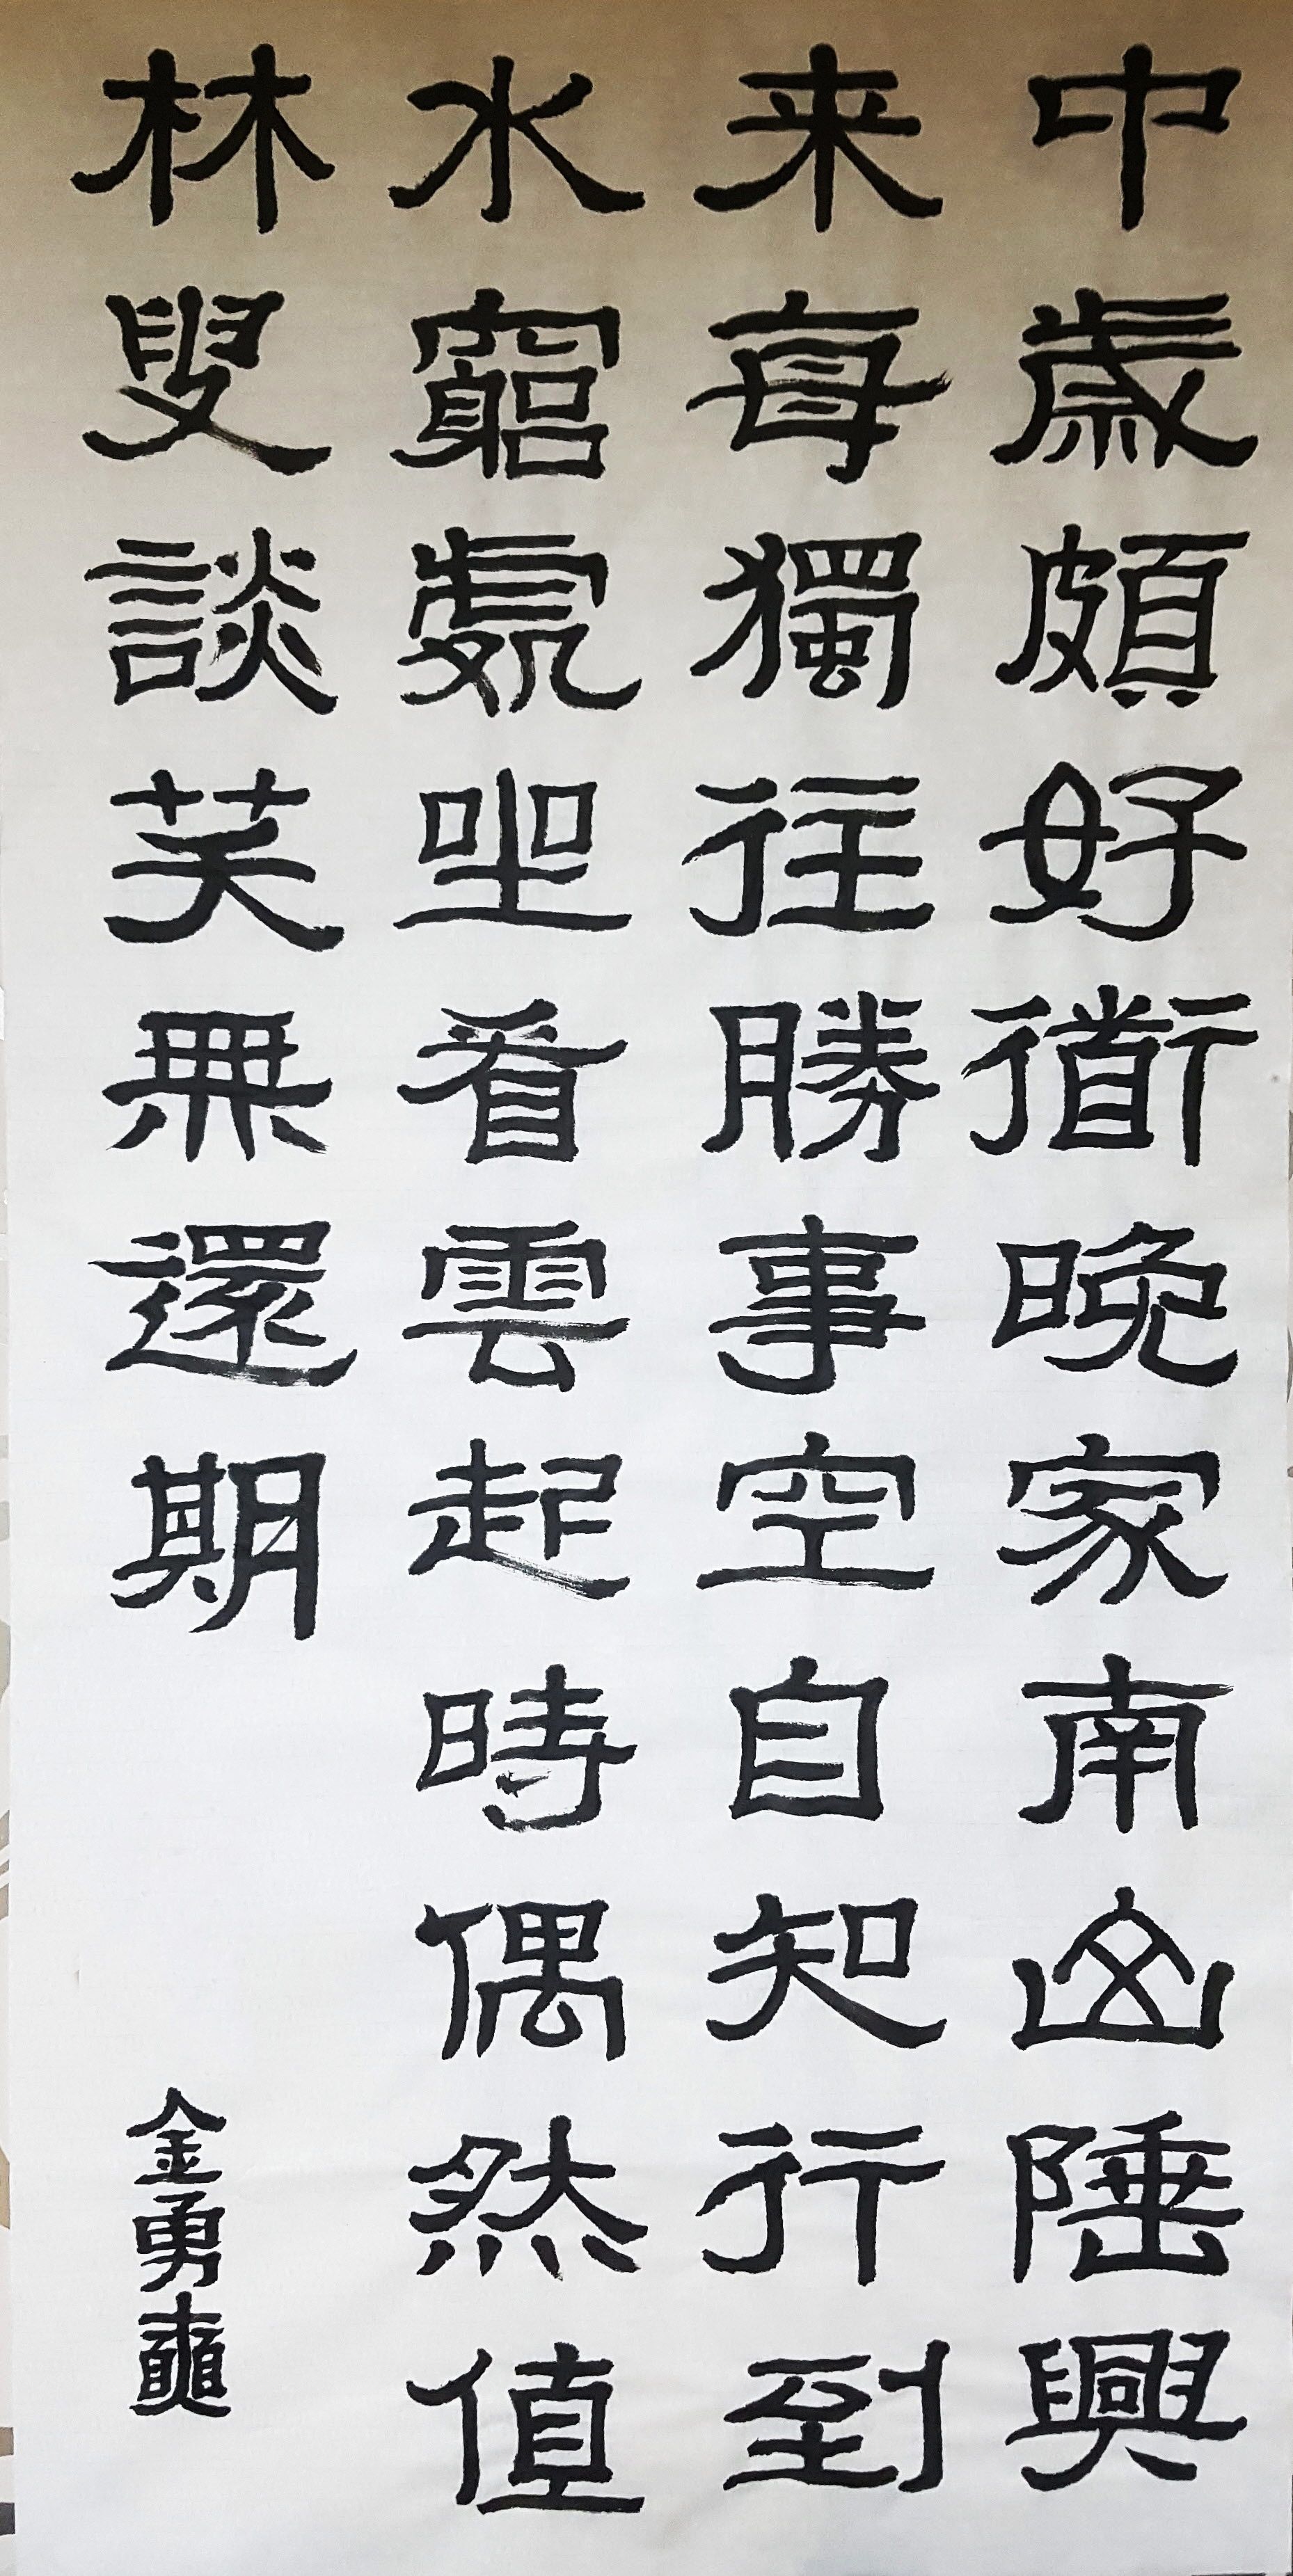 中歲頗好衟晚家南山陲興
来每獨往勝事空自知行到
水窮處坐看雲起時偶然值
林叟談芺無還期
金勇